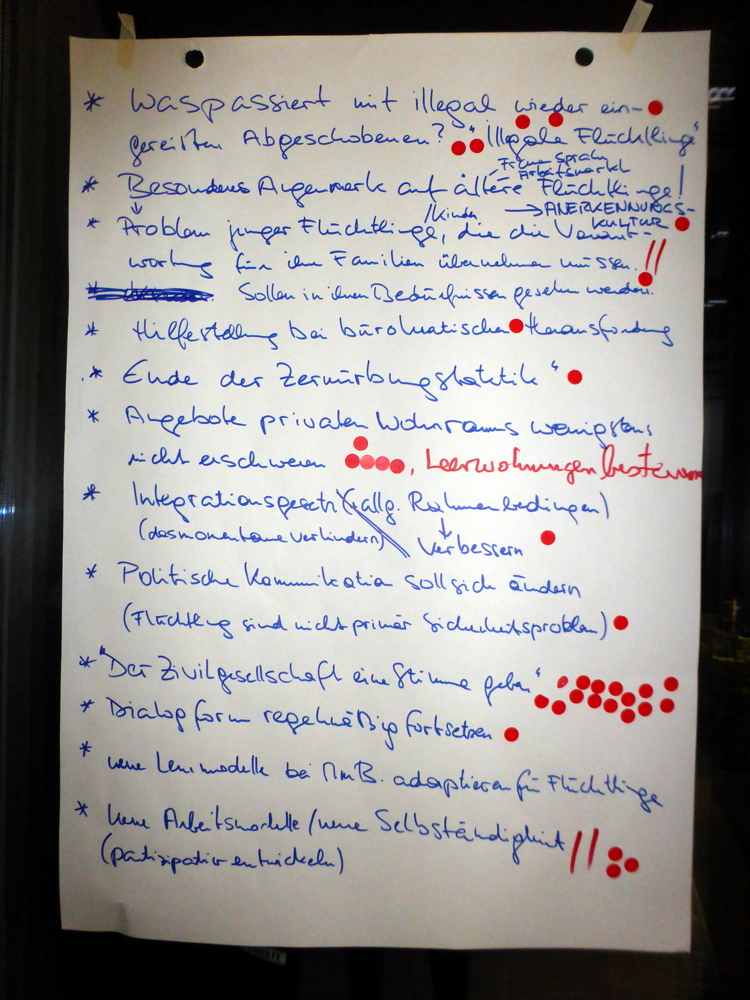 * Was passiert mit illegal wieder ein-
gereisten Abgeschobenen? "Illegale Flüchtlinge"
Fremdsprache
Arbeitsmarkt
* Besonderes Augenmerk auf ältere Flüchtlinge!
/Kinder → ANERKENNUNGS-
KULTUR
* Problem junger Flüchtlinge, die die Verant-
wortung für ihre Familien übernehmen müssen. //
* Sollen in ihren Bedürfnissen gesehen werden.
* Hilfestellung bei bürokratischen Herausforderung
* Ende der Zermürbungstaktik "
* Angebote privaten Wohnraums wenigstens
nicht erschweren , Leerwohnungen besteuern
* Integrationsgesetz (allg. Rahmenbedingen)
(das momentane verhindern) ↓ Verbessern
* Politische Kommunikation soll sich ändern
(Flüchtling sind nicht primär Sicherheitsproblem)
* "Der Zivilgesellschaft eine Stimme geben"
* Dialogform regelmäßig fortsetzen
* neue Lernmodelle bei MmB. adaptieren für Flüchtlinge
* neue Arbeitsmodelle/neue Selbständigkeit //
(partizipativ entwickeln)